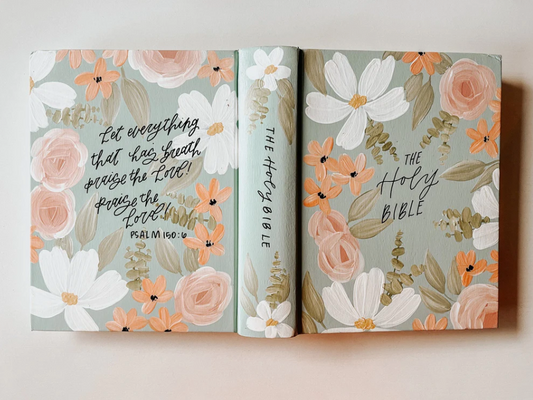 Let everything
that has breath
praise the Lord!
praise the
Lord!!
PSALM 150:6
THE Holy BIBLE
THE
Holy
BIBLE